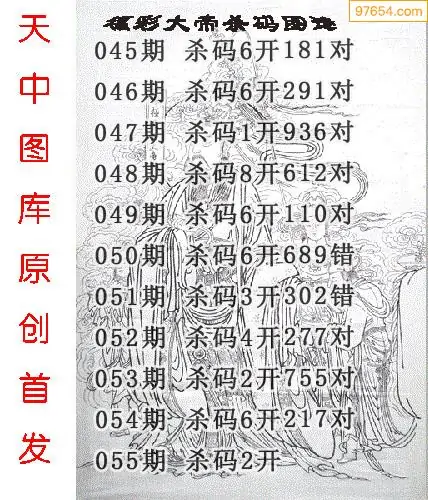 97654.com
福彩大帝杀码图迷
045期 杀码6开181对
046期 杀码6开291对
047期 杀码1开936对
048期 杀码8开612对
049期 杀码6开110对
050期 杀码6开689错
051期 杀码3开302错
052期 杀码4开277对
053期 杀码2开755对
054期 杀码6开217对
055期 杀码2开
天中图库原创首发